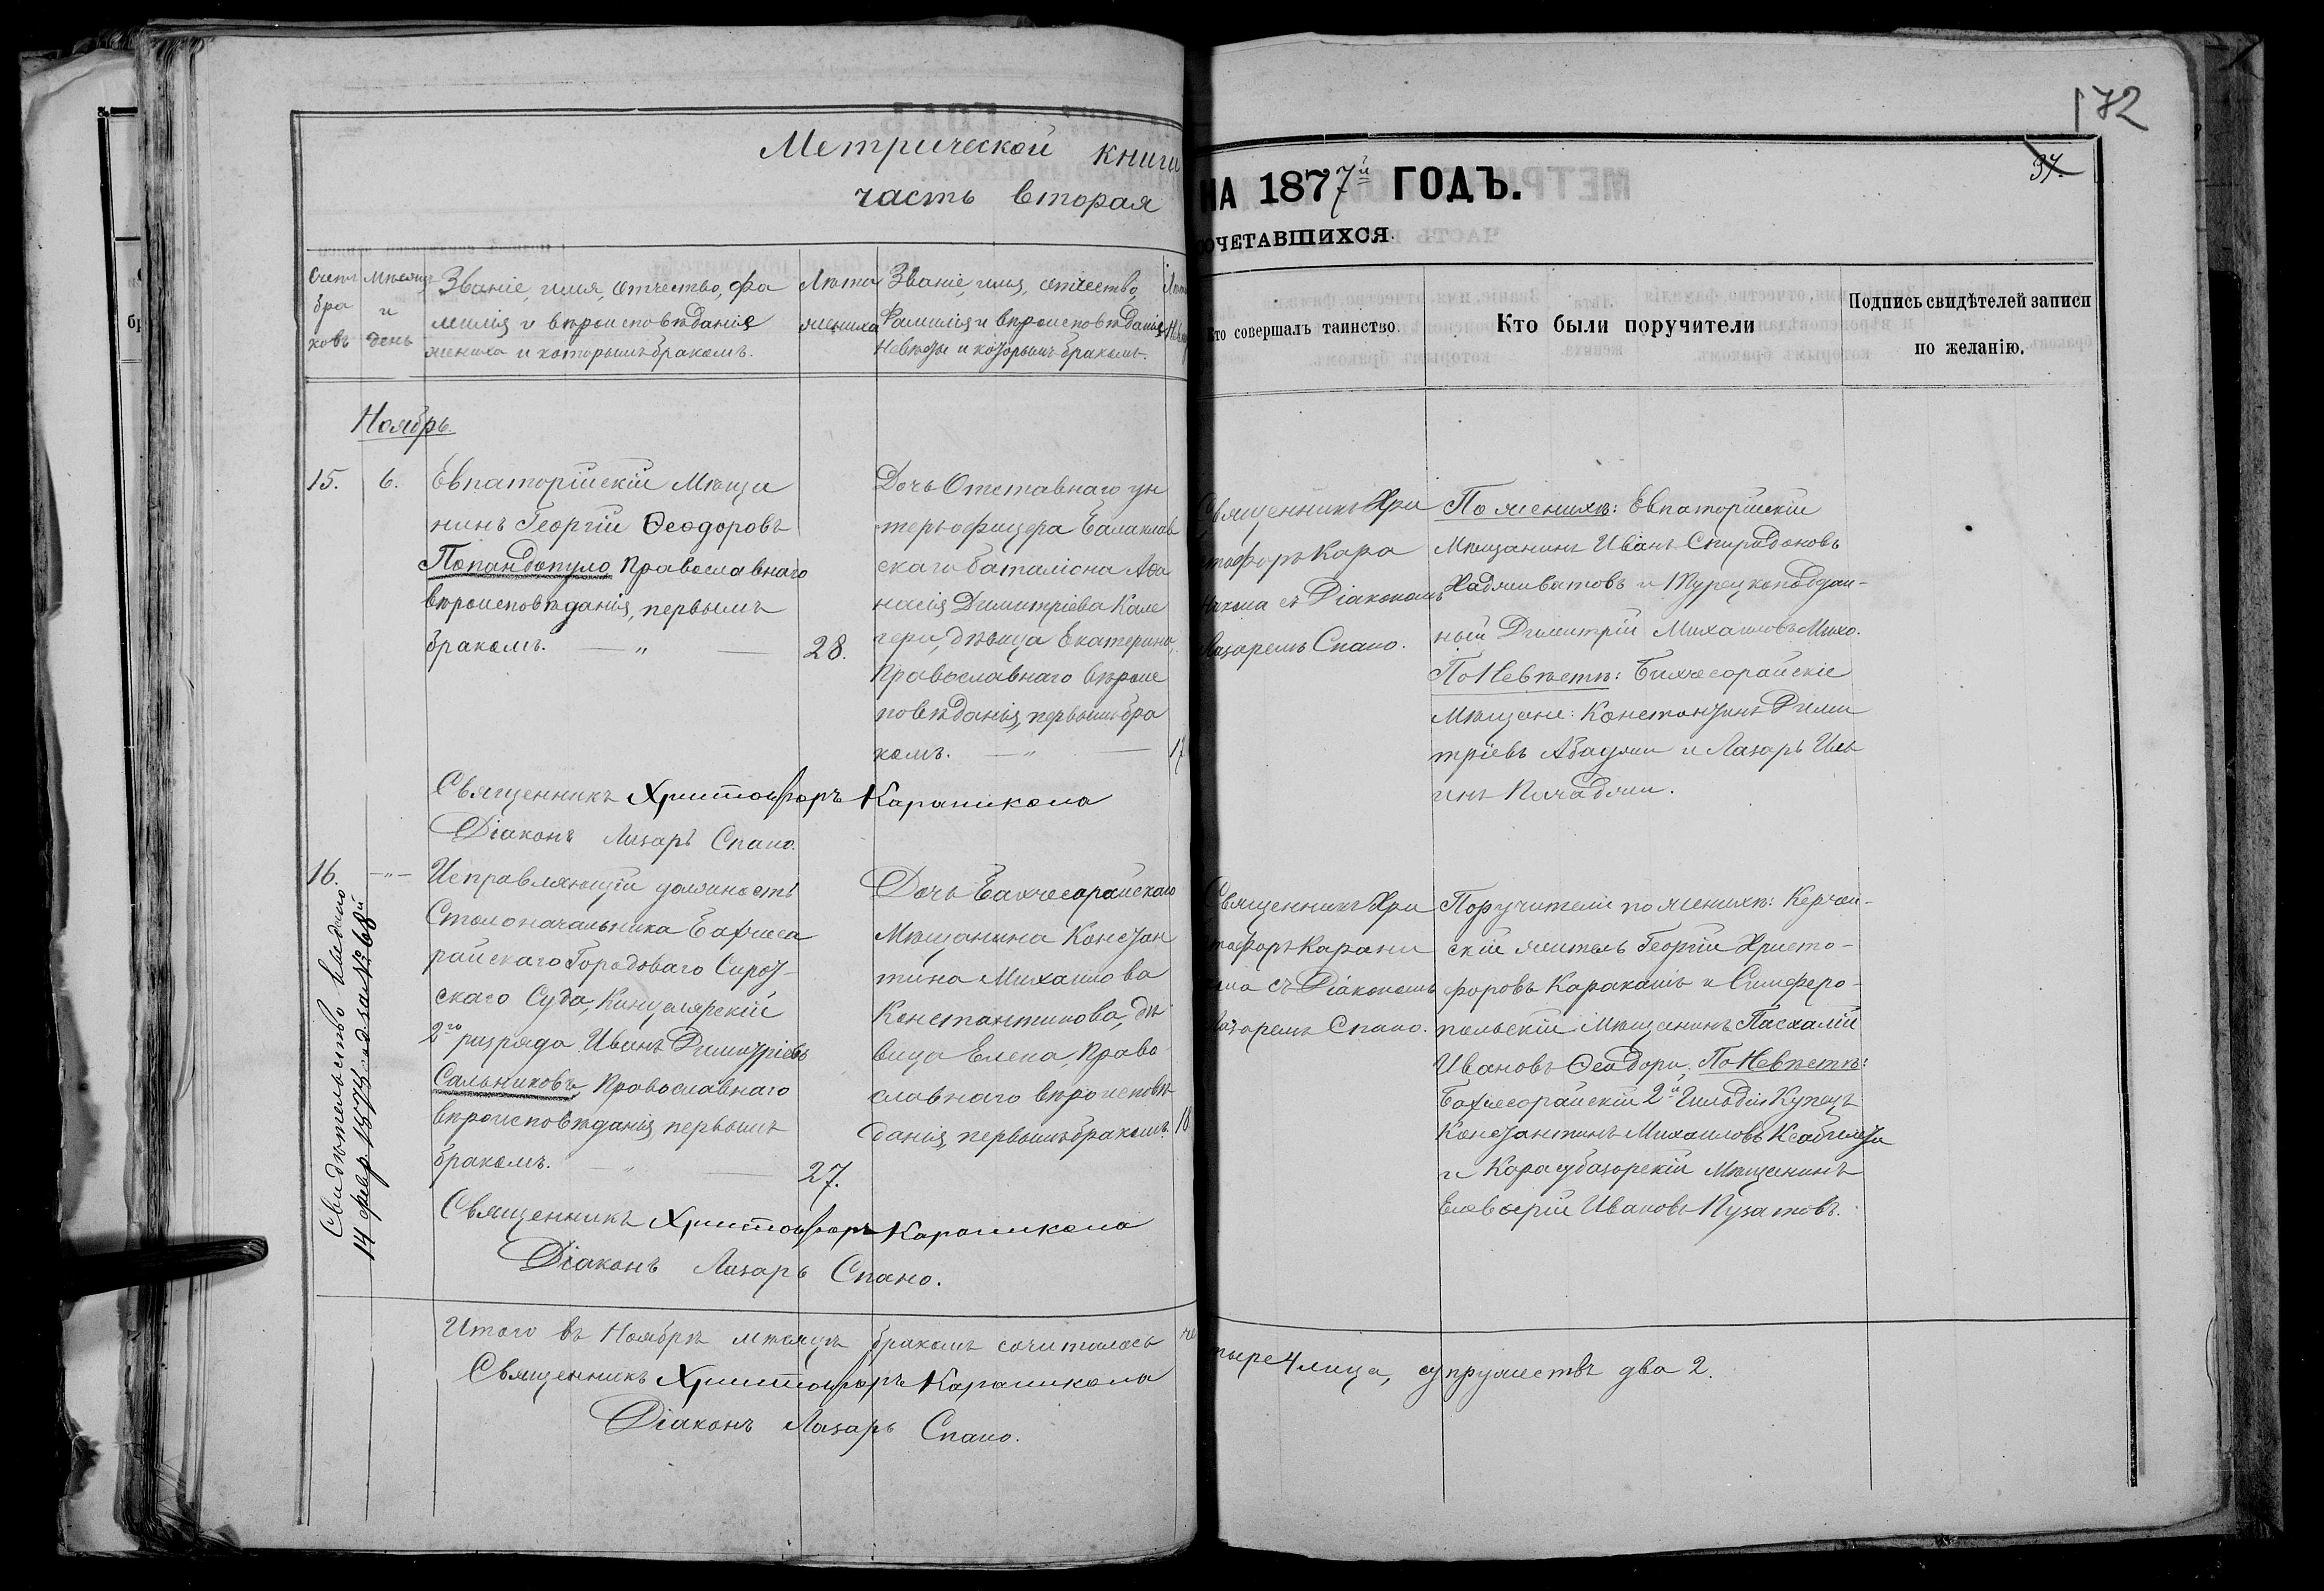 172
37.
Метрической книги
часть вторая
НА 1877й ГОДЪ.
СОЧЕТАВШИХСЯ.
Счетъ
бра
ковъ
Мѣсяцъ
и
день
Званіе, имя, отчество, фа
милія и вѣроисповѣданія
жениха и которымъ бракомъ.
Лѣта
жениха
Званіе, имя, отчество,
Фамилія и вѣроисповѣданія
Невѣсты и которымъ бракомъ.
Кто совершалъ таинство.
Кто были поручители
Подпись свидѣтелей записи
по желанію.
Ноябрь.
15.
6.
Евпаторійскій Мѣща
нинъ Георгій Ѳеодоровъ
Попандопуло Православнаго
вѣроисповѣданія, первымъ
бракомъ. — " —
28.
Дочь Отставнаго ун
теръ офицера Балаклав
скаго баталіона Аѳа
насія Димитріева Кале
чери, дѣвица Екатерина,
Православнаго вѣроис
повѣданія, первымъ бра
комъ. — " —
17
Священникъ Хри
стофоръ Кара
никола съ Діакономъ
Лазаремъ Спано.
По женихѣ: Евпаторійскій
Мѣщанинъ Иванъ Спиридоновъ
Хадживатовъ и Турецкоподдан-
ный Димитрій Михаиловъ Михо.
По Невѣстѣ: Бахчесарайскіе
Мѣщане: Константинъ Дими
тріевъ Абаджи и Лазарь Иль
инъ Пичаджи.
Священникъ Христофоръ Караникола
Діаконъ Лазарь Спано.
16.
— " —
Свидѣтельство выдано
14 февр. 1878 г. за № 68й
Исправляющій должность
Столоначальника Бахчеса
райскаго Городоваго Сирот-
скаго Суда, Канцелярскій
2го разряда Иванъ Димитріевъ
Сальниковъ, Православнаго
вѣроисповѣданія, первымъ
бракомъ. — " —
27.
Дочь Бахчесарайскаго
Мѣщанина Констан
тина Михаилова
Константинова, дѣ
вица Елена, Право
славнаго вѣроисповѣ
данія, первымъ бракомъ.
18
Священникъ Хри
стофоръ Карани
кола съ Діакономъ
Лазаремъ Спано.
Поручители по женихѣ: Керчен-
скій житель Георгій Христо-
форовъ Каракашъ и Симферо-
польскій Мѣщанинъ Пасхалій
Ивановъ Ѳеодори. По Невѣстѣ:
Бахчесарайскій 2й Гильдіи Купецъ
Константинъ Михаиловъ
и Карасубазарскій Мѣщанинъ
Елевѳерій Ивановъ Пузатовъ.
Священникъ Христофоръ Караникола
Діаконъ Лазарь Спано.
Итого въ Ноябрѣ мѣсяцѣ бракомъ сочиталось че
тыре 4 лица, супружествъ два 2.
Священникъ Христофоръ Караникола
Діаконъ Лазарь Спано.